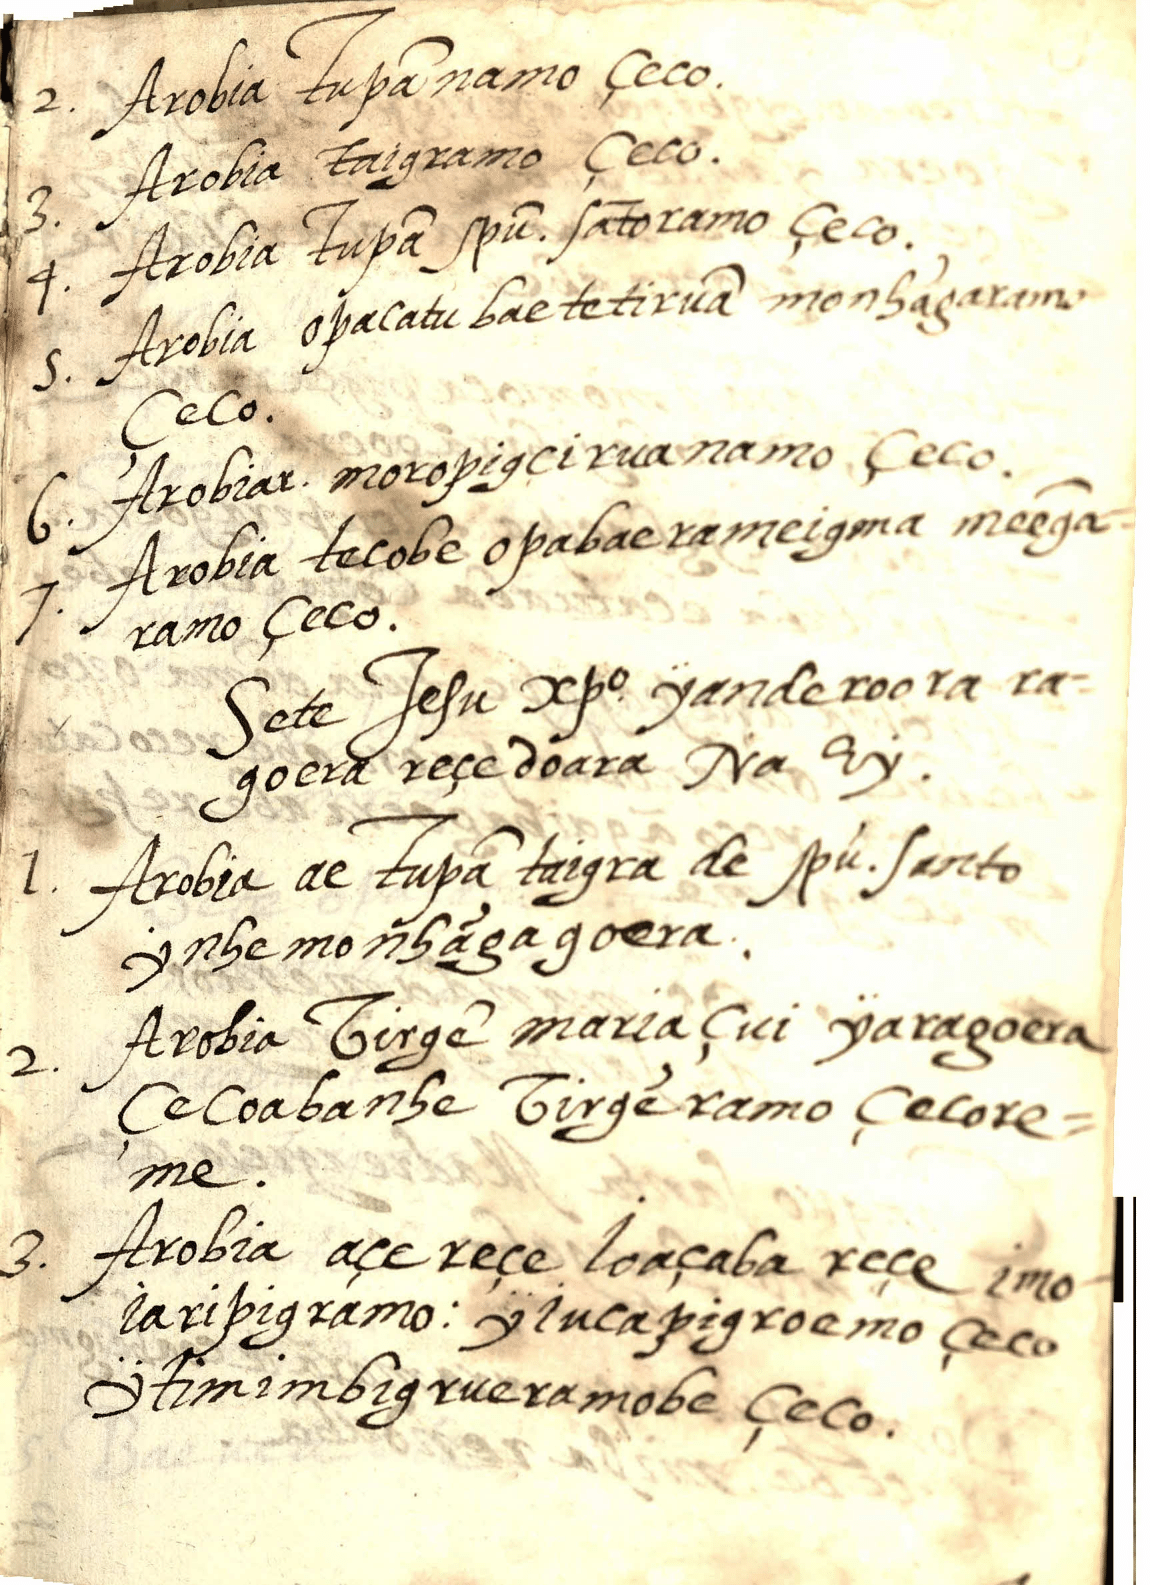 2. Arobia Tupã namo Çeco.
3. Arobia taigramo Çeco.
4. Arobia Tupã spũ. sãtoramo Çeco.
5. Arobia opacatu baetetiruã monhãgaramo
Çeco.
6. Arobiar. moropigçiruanamo Çeco.
7. Arobia tecobe opabaerameigma meẽga-
ramo Çeco.
Sete Jesu xpº. ÿanderoora ra-
goera reçe doara Na
1. Arobia ae Tupã taigra de spũ. santo
ÿnhemoñhãgagoera.
2. Arobia Virgẽ maria Çui ÿaragoera
Çecoabanhe Virgẽramo Çecore=
me.
3. Arobia açe reçe ioaçaba reçe imo-
iaripigramo: ÿiucapigroemo Çeco
ÿtimimbigrueramobe Çeco.